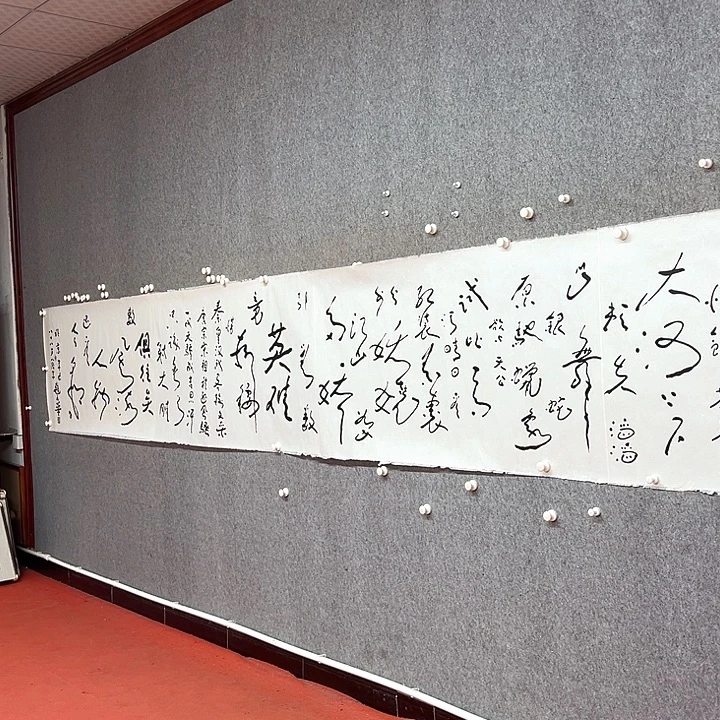 大河上下
顿失滔滔
山舞
银蛇
原驰蜡象
欲与天公
试比高
须晴日看
红装素裹
分外妖娆
江山如此
多娇
引无数
英雄
竞折腰
惜
秦皇汉武略输文采
唐宗宋祖稍逊风骚
一代天骄成吉思汗
只识弯弓
射大雕
俱往矣
数风流
人物
还看
今朝